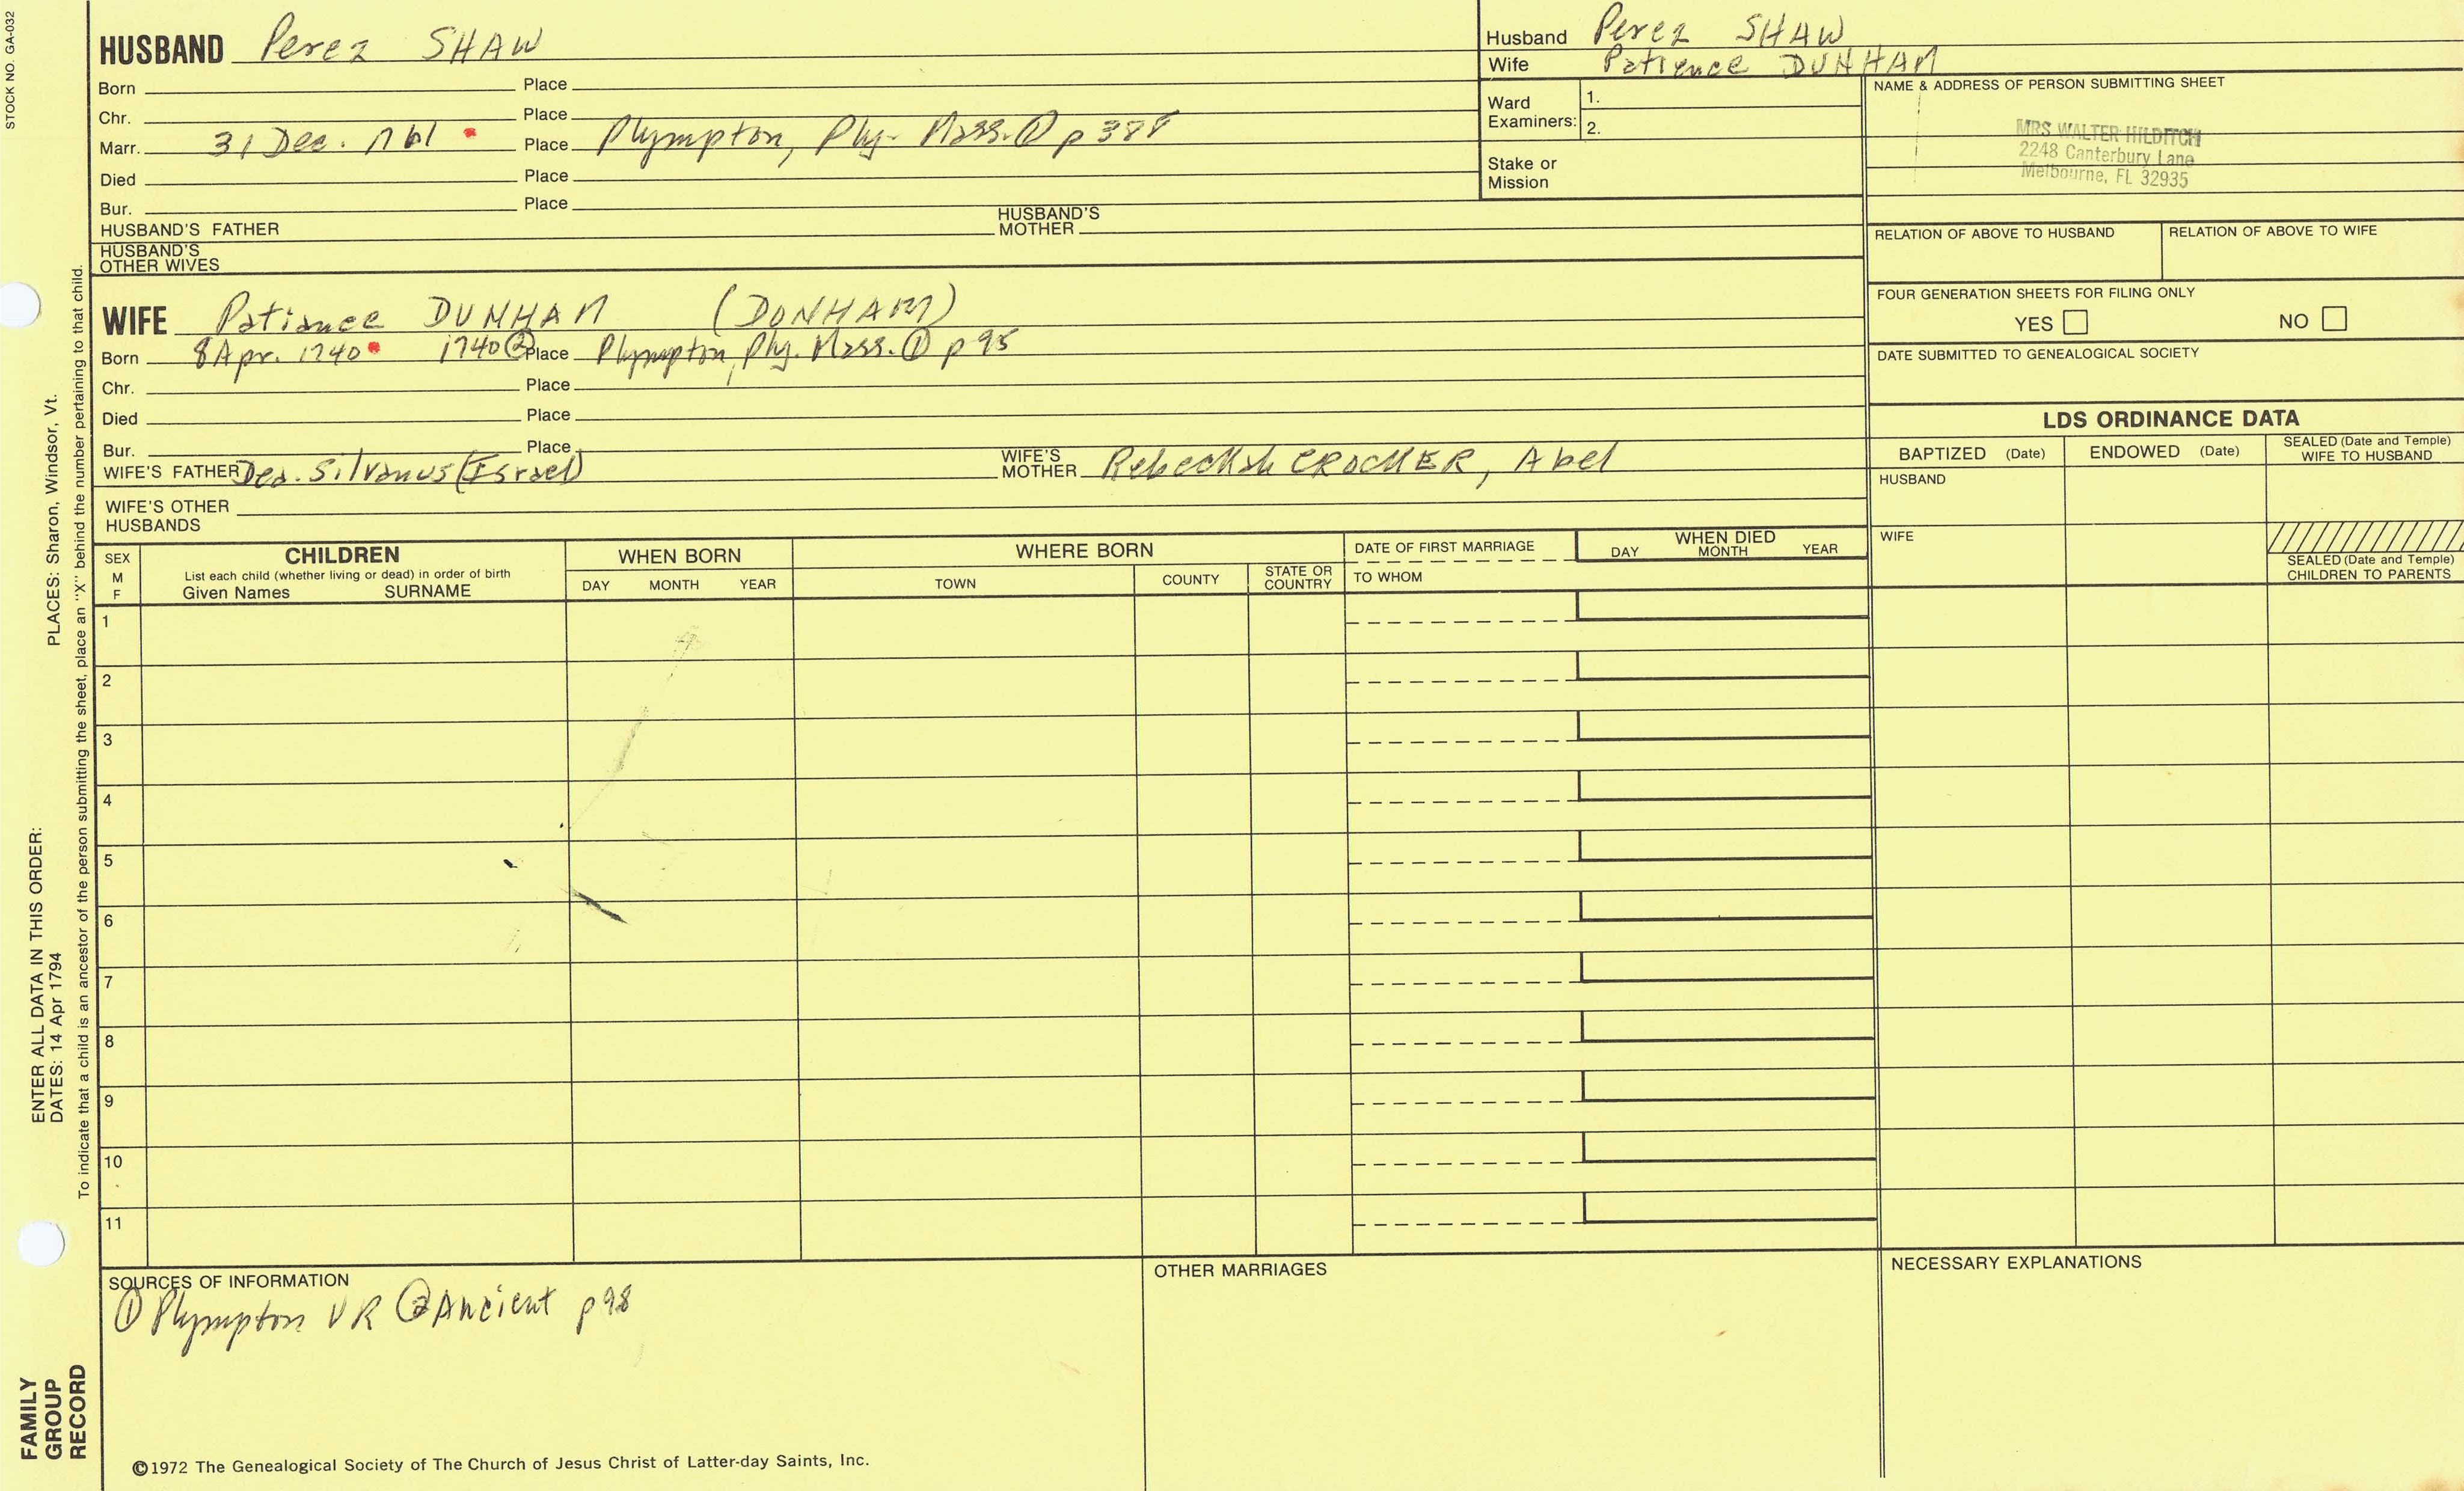 STOCK NO. GA-032
HUSBAND Perez SHAW
Born Place
Chr. Place
Marr. 31 Dec. 1761 Place Plympton, Ply. Mass. ① p 388
Died Place
Bur. Place
HUSBAND'S FATHER HUSBAND'S MOTHER
HUSBAND'S OTHER WIVES
Husband Perez SHAW
Wife Patience DUNHAM
Ward Examiners: 1.
2.
Stake or Mission
NAME & ADDRESS OF PERSON SUBMITTING SHEET
MRS WALTER HILDITCH
2248 Canterbury Lane
Melbourne, FL 32935
RELATION OF ABOVE TO HUSBAND RELATION OF ABOVE TO WIFE
FOUR GENERATION SHEETS FOR FILING ONLY
YES NO
DATE SUBMITTED TO GENEALOGICAL SOCIETY
WIFE Patience DUNHAM (DONHAM)
Born 8 Apr. 1740 1740 ② Place Plympton, Ply. Mass. ① p 95
Chr. Place
Died Place
Bur. Place
WIFE'S FATHER Dea. Silvanus (Israel) WIFE'S MOTHER Rebeckah CROCKER, Abel
WIFE'S OTHER HUSBANDS
LDS ORDINANCE DATA
BAPTIZED (Date) ENDOWED (Date) SEALED (Date and Temple) WIFE TO HUSBAND
HUSBAND
WIFE
SEALED (Date and Temple) CHILDREN TO PARENTS
SEX M F
CHILDREN
List each child (whether living or dead) in order of birth
Given Names SURNAME
WHEN BORN
DAY MONTH YEAR
WHERE BORN
TOWN COUNTY STATE OR COUNTRY
DATE OF FIRST MARRIAGE
TO WHOM
WHEN DIED
DAY MONTH YEAR
1
2
3
4
5
6
7
8
9
10
11
SOURCES OF INFORMATION
① Plympton VR ② Ancient p 98
OTHER MARRIAGES
NECESSARY EXPLANATIONS
©1972 The Genealogical Society of The Church of Jesus Christ of Latter-day Saints, Inc.
FAMILY GROUP RECORD
ENTER ALL DATA IN THIS ORDER:
DATES: 14 Apr 1794
PLACES: Sharon, Windsor, Vt.
To indicate that a child is an ancestor of the person submitting the sheet, place an "X" behind the number pertaining to that child.